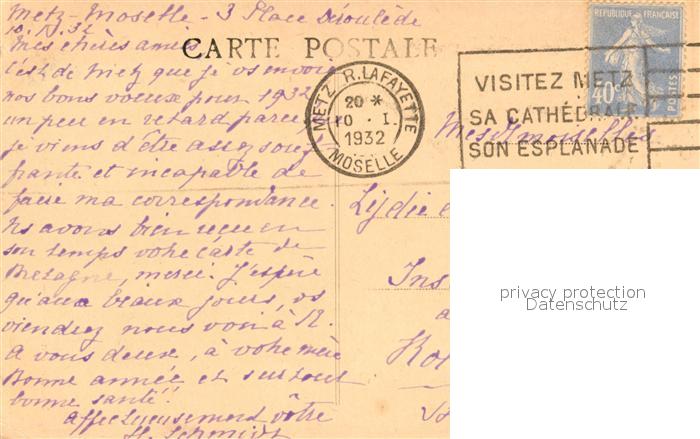 Metz-Moselle - 3 Place Déroulède
10.1.32
Mes chères amies
CARTE POSTALE
c'est de Metz que je vs envoie
nos bons voeux pour 1932
un peu en retard parce que
je viens d'être assez souf-
frante et incapable de
faire ma correspondance.
Ns avons bien reçu en
son temps votre carte de
Bretagne, merci. J'espère
qu'aux beaux jours, vs
viendrez nous voir à R.
A vous deux, à votre mère
Bonne année et surtout
bonne santé!
affectueusement vôtre
H. Schmidt
METZ R. LAFAYETTE
20 *
10 I.
1932
MOSELLE
VISITEZ METZ
SA CATHÉDRALE
SON ESPLANADE
REPUBLIQUE FRANÇAISE
40c
POSTES
Mesdemoiselles
Lydie
Ins
a
privacy protection
Datenschutz